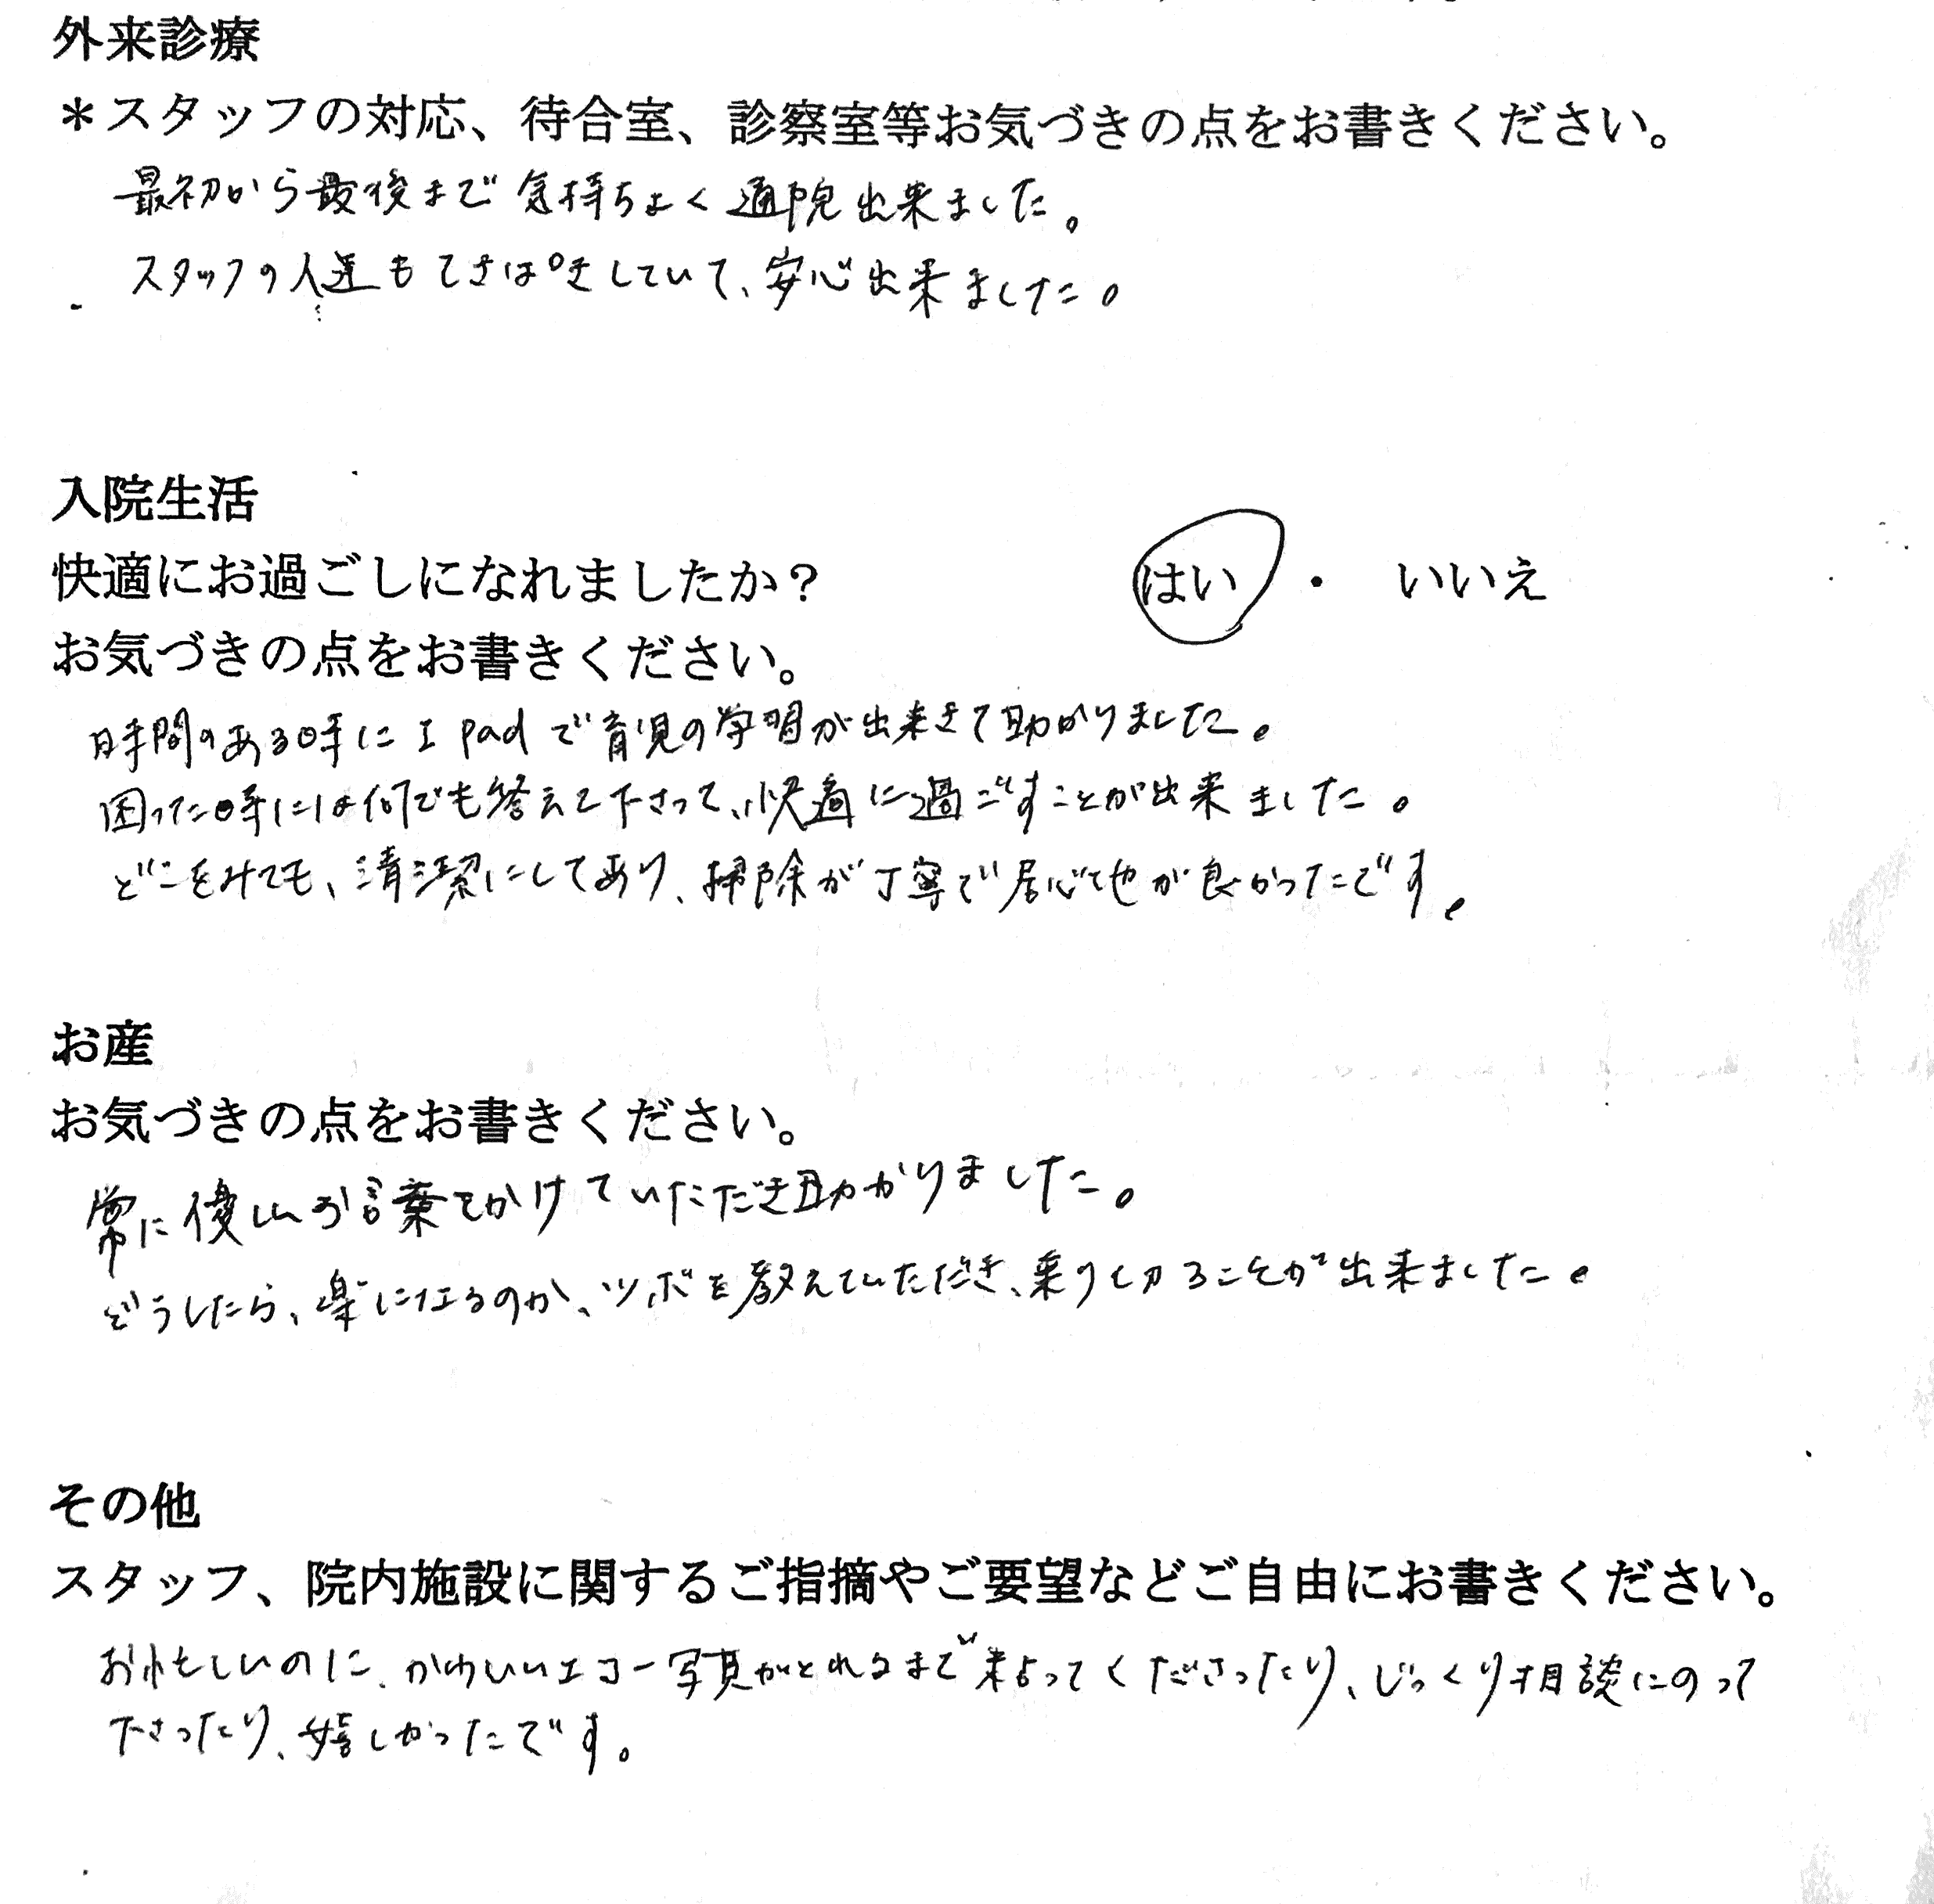 外来診療
＊スタッフの対応、待合室、診察室等お気づきの点をお書きください。
最初から最後まで気持ちよく通院出来ました。
スタッフの人達もてきぱきしていて、安心出来ました。
入院生活
快適にお過ごしになれましたか？ はい ・ いいえ
お気づきの点をお書きください。
時間のある時に I pad で育児の学習が出来きて助かりました。
困った時には何でも答えて下さって、快適に過ごすことが出来ました。
どこをみても、清潔にしてあり、掃除が丁寧で居心地が良かったです。
お産
お気づきの点をお書きください。
常に優しいお言葉をかけていただき助かりました。
どうしたら、楽になるのか、ツボを教えていただき、乗り切ることが出来ました。
その他
スタッフ、院内施設に関するご指摘やご要望などご自由にお書きください。
お忙しいのに、かわいいエコー写真がとれるまで粘ってくださったり、じっくり相談にのって
下さったり、嬉しかったです。